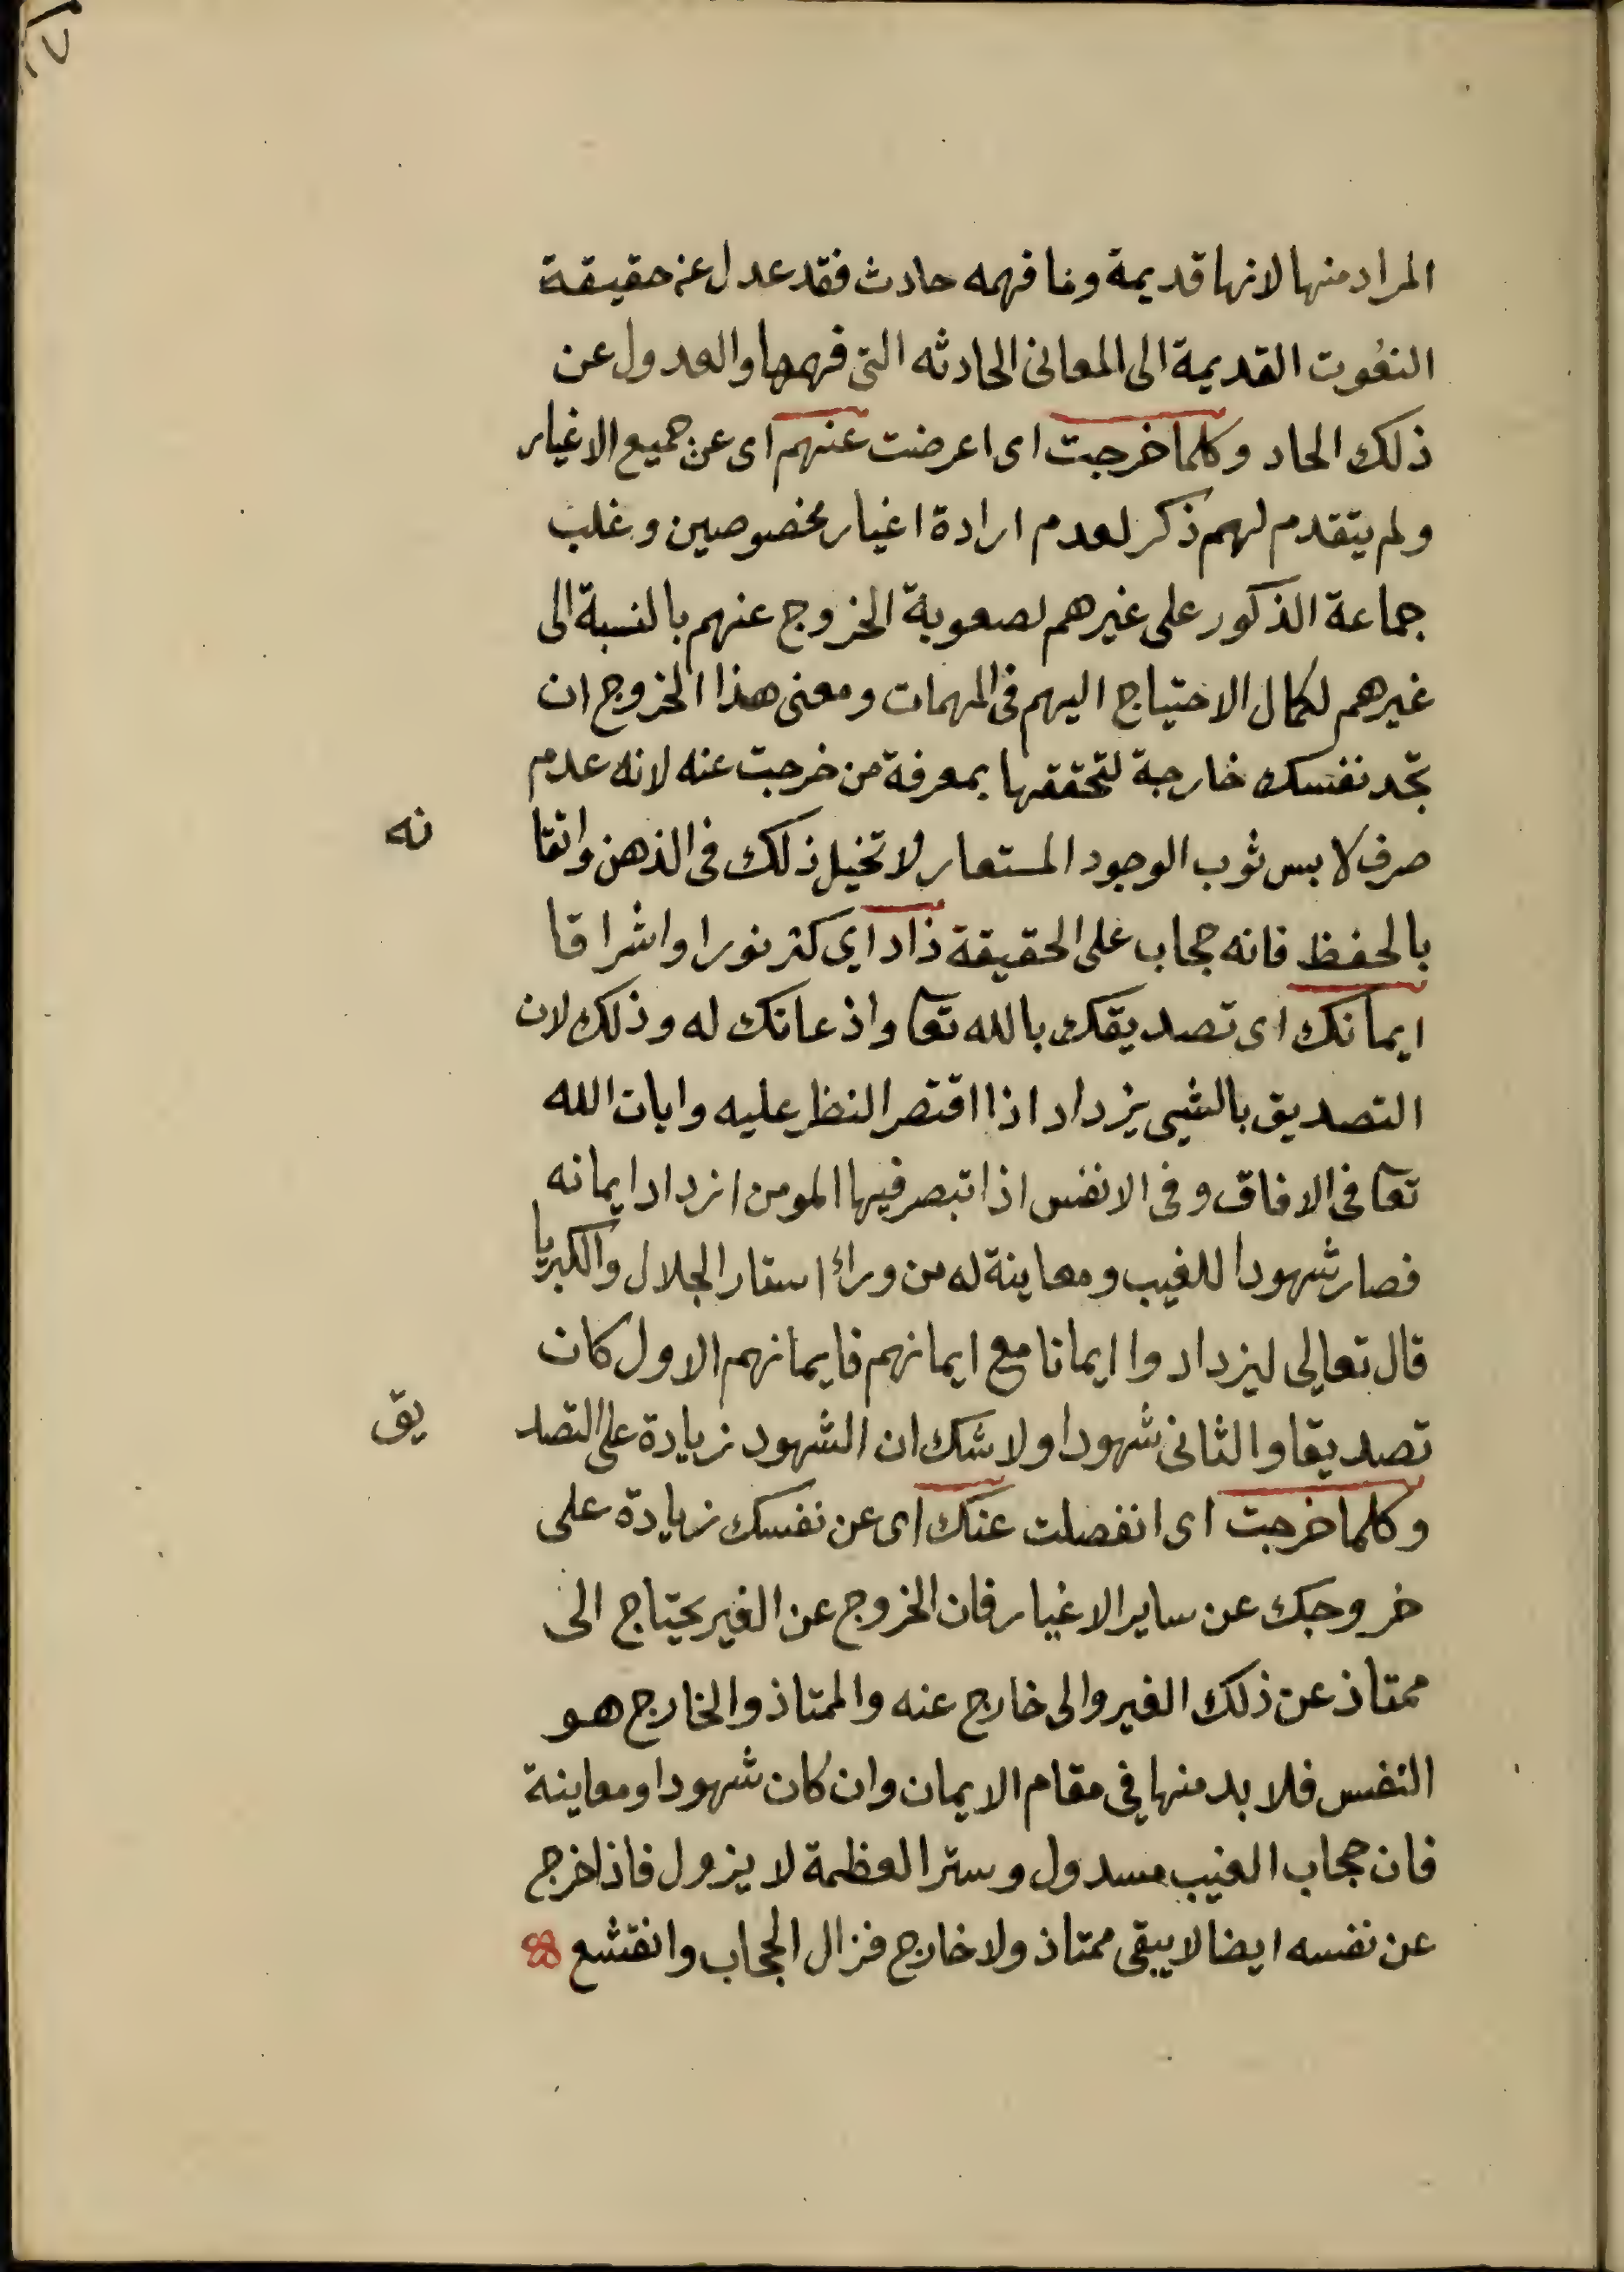 المراد منها لانها قديمة وما فهمه حادث فقد عدل عن حقيقة
النعوت القديمة الى المعانى الحادثه التى فهمها والعدول عن
ذلك الحاد وكلما خرجت اى اعرضت عنهم اى عن جميع الاغيار
ولم يتقدم لهم ذكر لعدم ارادة اغيار مخصوصين وغلب
جماعة الذكور على غيرهم لصعوبة الخروج عنهم بالنسبة الى
غيرهم لكمال الاحتياج اليهم فى المهمات ومعنى هذا الخروج ان
تجد نفسك خارجة لتحققها بمعرفة من خرجت عنه لانه عدم
صرف لابس ثوب الوجود المستعار لا تخيل ذلك فى الذهن واتقا نه
بالحفظ فانه حجاب على الحقيقة زاد اي كثر نورا واشراقا
ايمانك اى تصديقك بالله تعا واذعانك له وذلك لان
التصديق بالشيى يزداد اذا اقتصر النظر عليه وايات الله
تعا فى الافاق وفى الانفس اذا تبصر فيها المومن ازداد ايمانه
فصار شهودا للغيب ومعاينة له من وراء استار الجلال والكبريا
قال تعالى ليزدادوا ايمانا مع ايمانهم فايمانهم الاول كان
تصديقا والثانى شهودا ولا شك ان الشهود زيادة على التصد يق
وكلما خرجت اى انفصلت عنك اى عن نفسك زيادة على
خروجك عن ساير الاغيار فان الخروج عن الغير يحتاج الى
ممتاذ عن ذلك الغير والى خارج عنه والممتاذ والخارج هو
النفس فلا بد منها في مقام الايمان وان كان شهودا ومعاينة
فان حجاب الغيب مسدول وستر العظمة لا يزول فاذا خرج
عن نفسه ايضا لا يبقى ممتاذ ولا خارج فزال الحجاب وانقشع